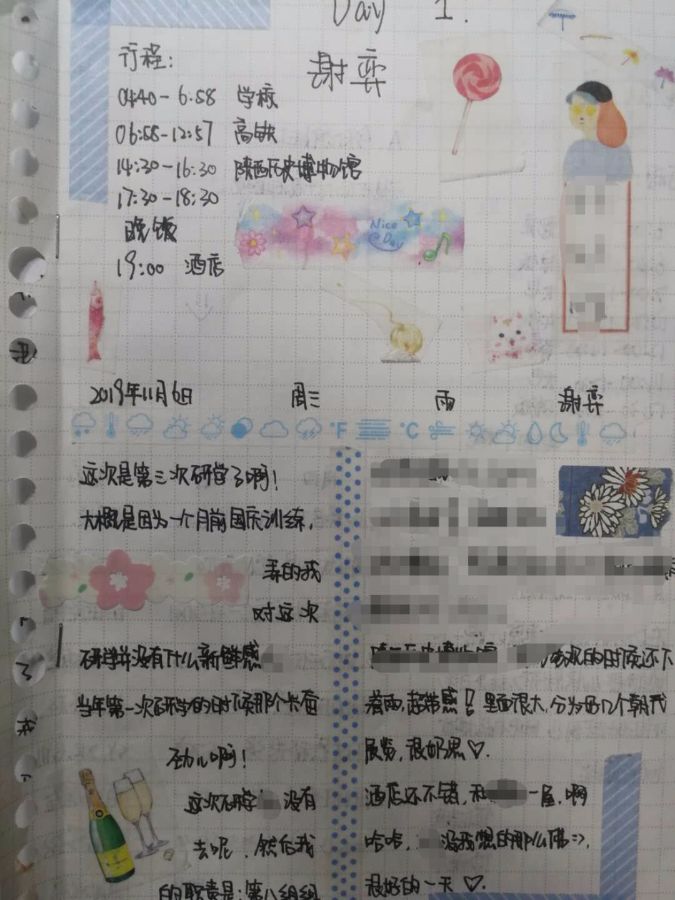 Day 1.
行程:
谢弈
04:40-6:58 学校
06:58-12:57 高铁
14:30-16:30 陕西历史博物馆
17:30-18:30
晚饭
19:00 酒店
Nice Day
2019年11月6日 周三 雨 谢弈
°F °C
这次是第三次研学了啊!
大概是因为一个月前国庆训练,
弄的我
对这次
研学并没有什么新鲜感
当年第一次研学的时候那个长面
劲儿啊!
这次研学 没有
去呢,然后我
的职责是:第八组组
的时候还下
着雨,超带感!! 里面很大,分为好几个朝代
展览,很好黑♡.
酒店还不错,和 一屋,啊
哈哈, 没我想的那么佛=),
很好的一天♡.